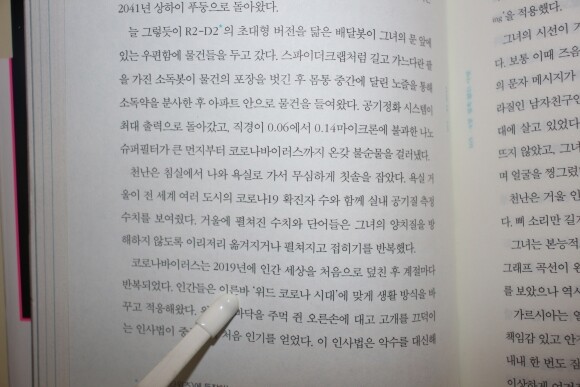 2041년 상하이 푸둥으로 돌아왔다.
늘 그렇듯이 R2-D2*의 초대형 버전을 닮은 배달봇이 그녀의 문 앞에
있는 우편함에 물건들을 두고 갔다. 스파이더크랩처럼 길고 가느다란 팔
을 가진 소독봇이 물건의 포장을 벗긴 후 몸통 중간에 달린 노즐을 통해
소독약을 분사한 후 아파트 안으로 물건을 들여왔다. 공기정화 시스템이
최대 출력으로 돌아갔고, 직경이 0.06에서 0.14마이크론에 불과한 나노
슈퍼필터가 큰 먼지부터 코로나바이러스까지 온갖 불순물을 걸러냈다.
천난은 침실에서 나와 욕실로 가서 무심하게 칫솔을 잡았다. 욕실 거
울이 전 세계 여러 도시의 코로나19 확진자 수와 함께 실내 공기질 측정
수치를 보여줬다. 거울에 펼쳐진 수치와 단어들은 그녀의 양치질을 방
해하지 않도록 이리저리 옮겨지거나 펼쳐지고 접히기를 반복했다.
코로나바이러스는 2019년에 인간 세상을 처음으로 덮친 후 계절마다
반복되었다. 인간들은 이른바 '위드 코로나 시대'에 맞게 생활 방식을 바
꾸고 적용해왔다. 바닥을 주먹 쥔 오른손에 대고 고개를 끄덕이
는 인사법이 처음 인기를 얻었다. 이 인사법은 악수를 대신해
을 적용했다.
그녀의 시선이
다. 보통 이때 즈음
의 문자 메시지가
라질인 남자친구인
대에 살고 있었다
뜨지 않았고, 그녀
며 얼굴을 찡그렸
천난은 거울
다. 삐 소리만
그녀는 본능적
그래프 곡선이
를 보았으나 역시
가르시아는
책임감 있고
내내 한 번도
이상하게